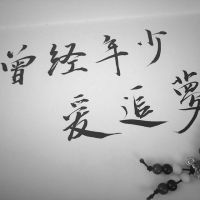 曾经年少
爱追夢